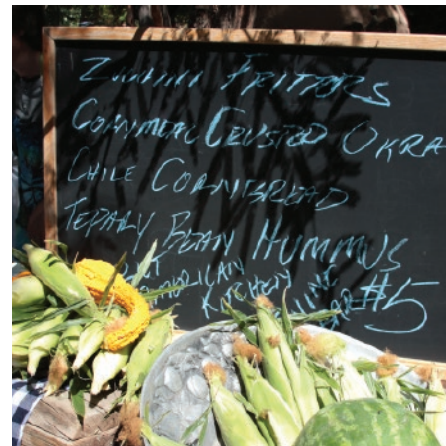 ZUCCHINI FRITTERS
CORNMEAL CRUSTED OKRA
CHILE CORNBREAD
TEPARY BEAN HUMMUS
AMERICAN
KITCHEN
#5